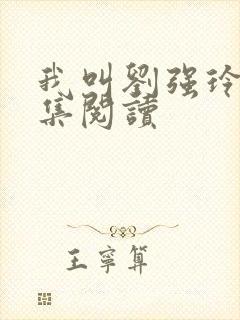 我叫劉强玲
集閱讀
王寧算